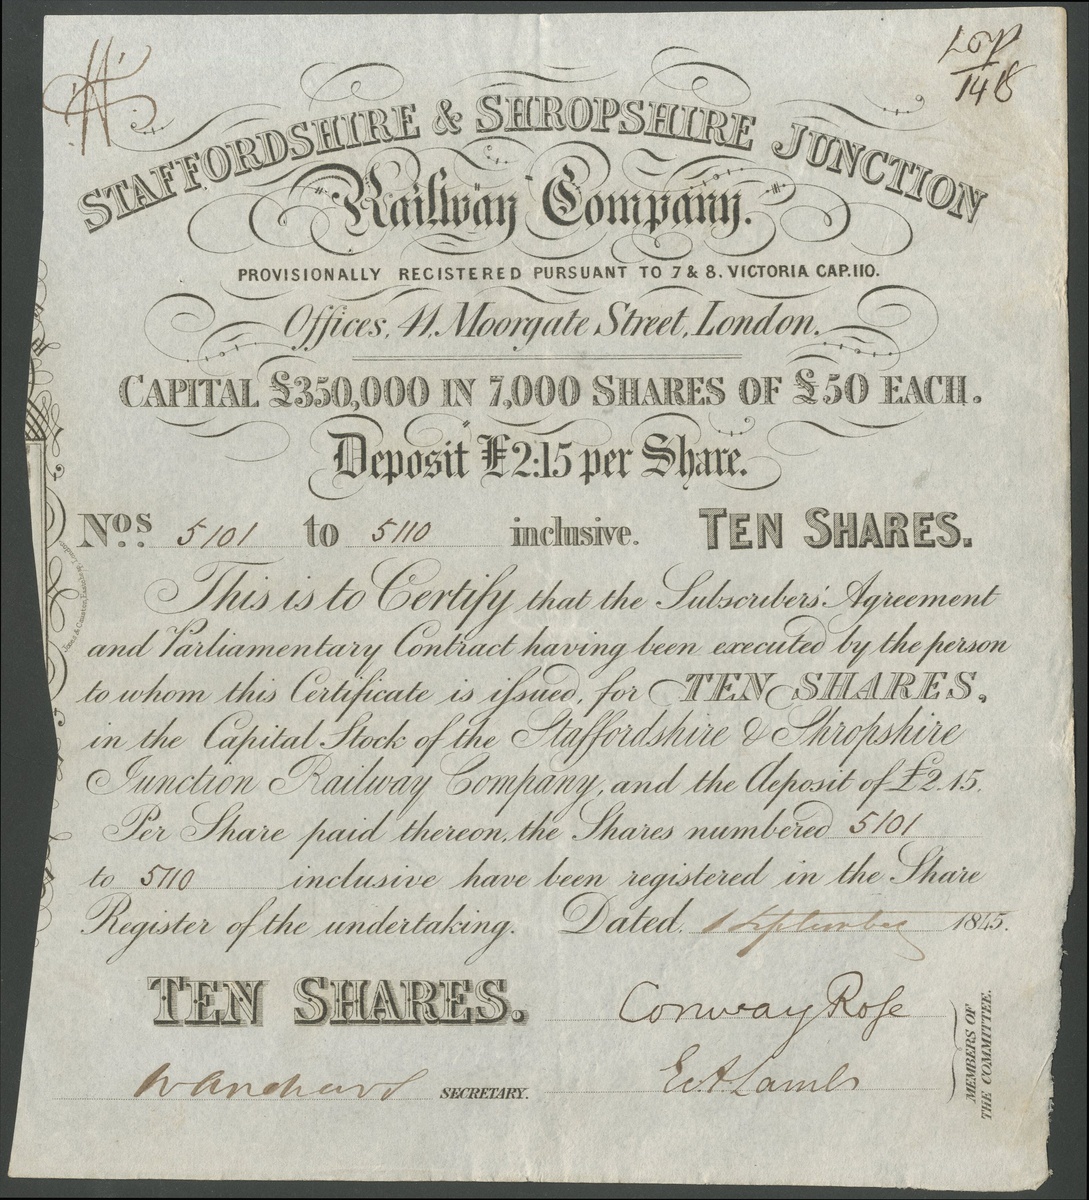 STAFFORDSHIRE & SHROPSHIRE JUNCTION
Railway Company.
PROVISIONALLY REGISTERED PURSUANT TO 7 & 8. VICTORIA CAP. 110.
Offices, 41, Moorgate Street, London.
CAPITAL £350,000 IN 7,000 SHARES OF £50 EACH.
Deposit £2:15 per Share.
Nos. 5101 to 5110 inclusive. TEN SHARES.
This is to Certify that the Subscribers' Agreement
and Parliamentary Contract having been executed by the person
to whom this Certificate is issued, for TEN SHARES,
in the Capital Stock of the Staffordshire & Shropshire
Junction Railway Company, and the deposit of £2.15.
Per Share paid thereon, the Shares numbered 5101
to 5110 inclusive have been registered in the Share
Register of the undertaking. Dated. 1 September 1845.
TEN SHARES.
Conway Rose
SECRETARY.
E. A. Lamb
MEMBERS OF
THE COMMITTEE.